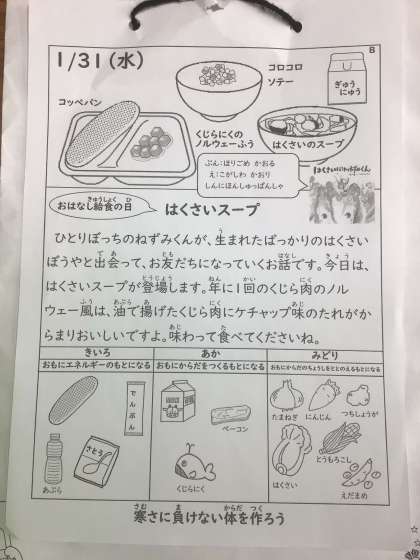 B
1/31(水)
コロコロ
ソテー
ぎゅう
にゅう
コッペパン
くじらにくの
ノルウェーふう
はくさいのスープ
ぶん:ほりごめ かおる
え:こがしわ かおり
しんにほんしゅっぱんしゃ
おはなし給食の日
きゅうしょく ひ
はくさいスープ
ひとりぼっちのねずみくんが、生まれたばっかりのはくさい
ぼうやと出会って、お友だちになっていくお話です。今日は、
はくさいスープが登場します。年に1回のくじら肉のノル
ウェー風は、油で揚げたくじら肉にケチャップ味のたれがか
らまりおいしいですよ。味わって食べてくださいね。
きいろ
おもにエネルギーのもとになる
でんぷん
さとう
あぶら
あか
おもにからだをつくるもとになる
ベーコン
くじらにく
みどり
おもにからだのちょうしをととのえるもとになる
たまねぎ
にんじん
つちしょうが
とうもろこし
はくさい
えだまめ
寒さに負けない体を作ろう